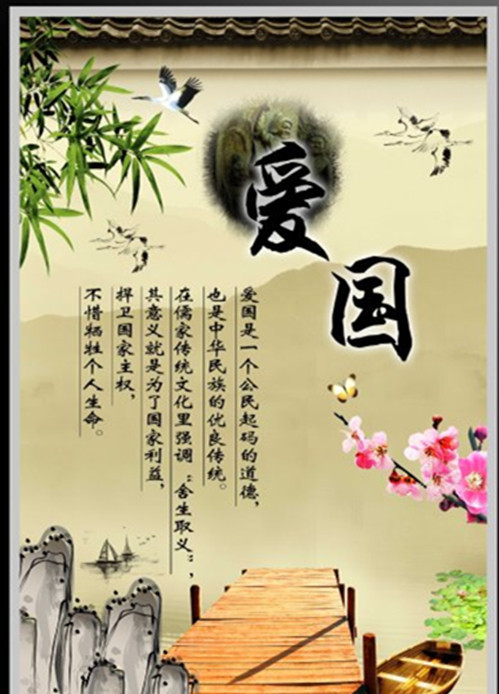 爱国
爱国是一个公民起码的道德，
也是中华民族的优良传统。
在儒家传统文化里强调“舍生取义”，
其意义就是为了国家利益，
捍卫国家主权，
不惜牺牲个人生命。